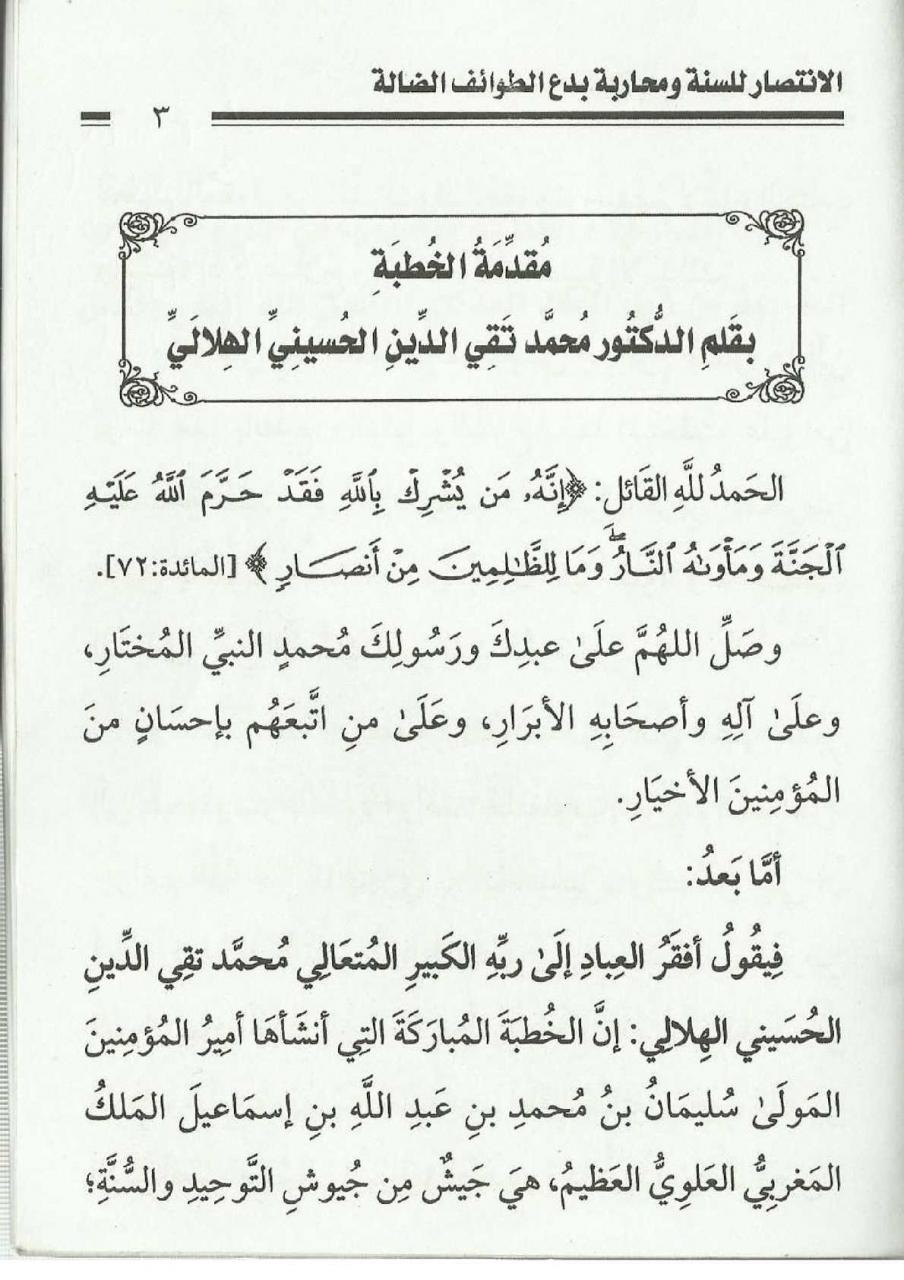 الانتصار للسنة ومحاربة بدع الطوائف الضالة
٣
مُقدِّمَةُ الخُطبَةِ
بِقَلمِ الدُّكتُور مُحمَّد تَقِي الدِّينِ الحُسينِيِّ الهِلالَيِّ
الحَمدُ للَّهِ القَائل: ﴿إِنَّهُۥ مَن يُشْرِكْ بِٱللَّهِ فَقَدْ حَرَّمَ ٱللَّهُ عَلَيْهِ
ٱلْجَنَّةَ وَمَأْوَىٰهُ ٱلنَّارُ ۖ وَمَا لِلظَّـٰلِمِينَ مِنْ أَنصَـــارٍ ﴾ [المائدة:٧٢].
وصَلِّ اللهُمَّ علَىٰ عبدِكَ ورَسُولِكَ مُحمدٍ النبيِّ المُختَارِ،
وعلَىٰ آلِهِ وأصحَابِهِ الأبرَارِ، وعَلَىٰ منِ اتَّبعَهُم بإحسَانٍ منَ
المُؤمِنينَ الأخيَارِ.
أمَّا بَعدُ:
فيقُولُ أفقَرُ العِبادِ إلَىٰ ربِّهِ الكَبيرِ المُتعَالِي مُحمَّد تقِي الدِّينِ
الحُسَيني الهِلالِي: إنَّ الخُطبَةَ المُبارَكَةَ التِي أنشَأهَا أمِيرُ المُؤمِنينَ
المَولَىٰ سُليمَانُ بنُ مُحمدِ بنِ عَبدِ اللَّهِ بنِ إسمَاعيلَ المَلكُ
المَغربِيُّ العَلوِيُّ العَظيمُ، هيَ جَيشٌ مِن جُيوشِ التَّوحِيدِ والسُّنَّةِ؛